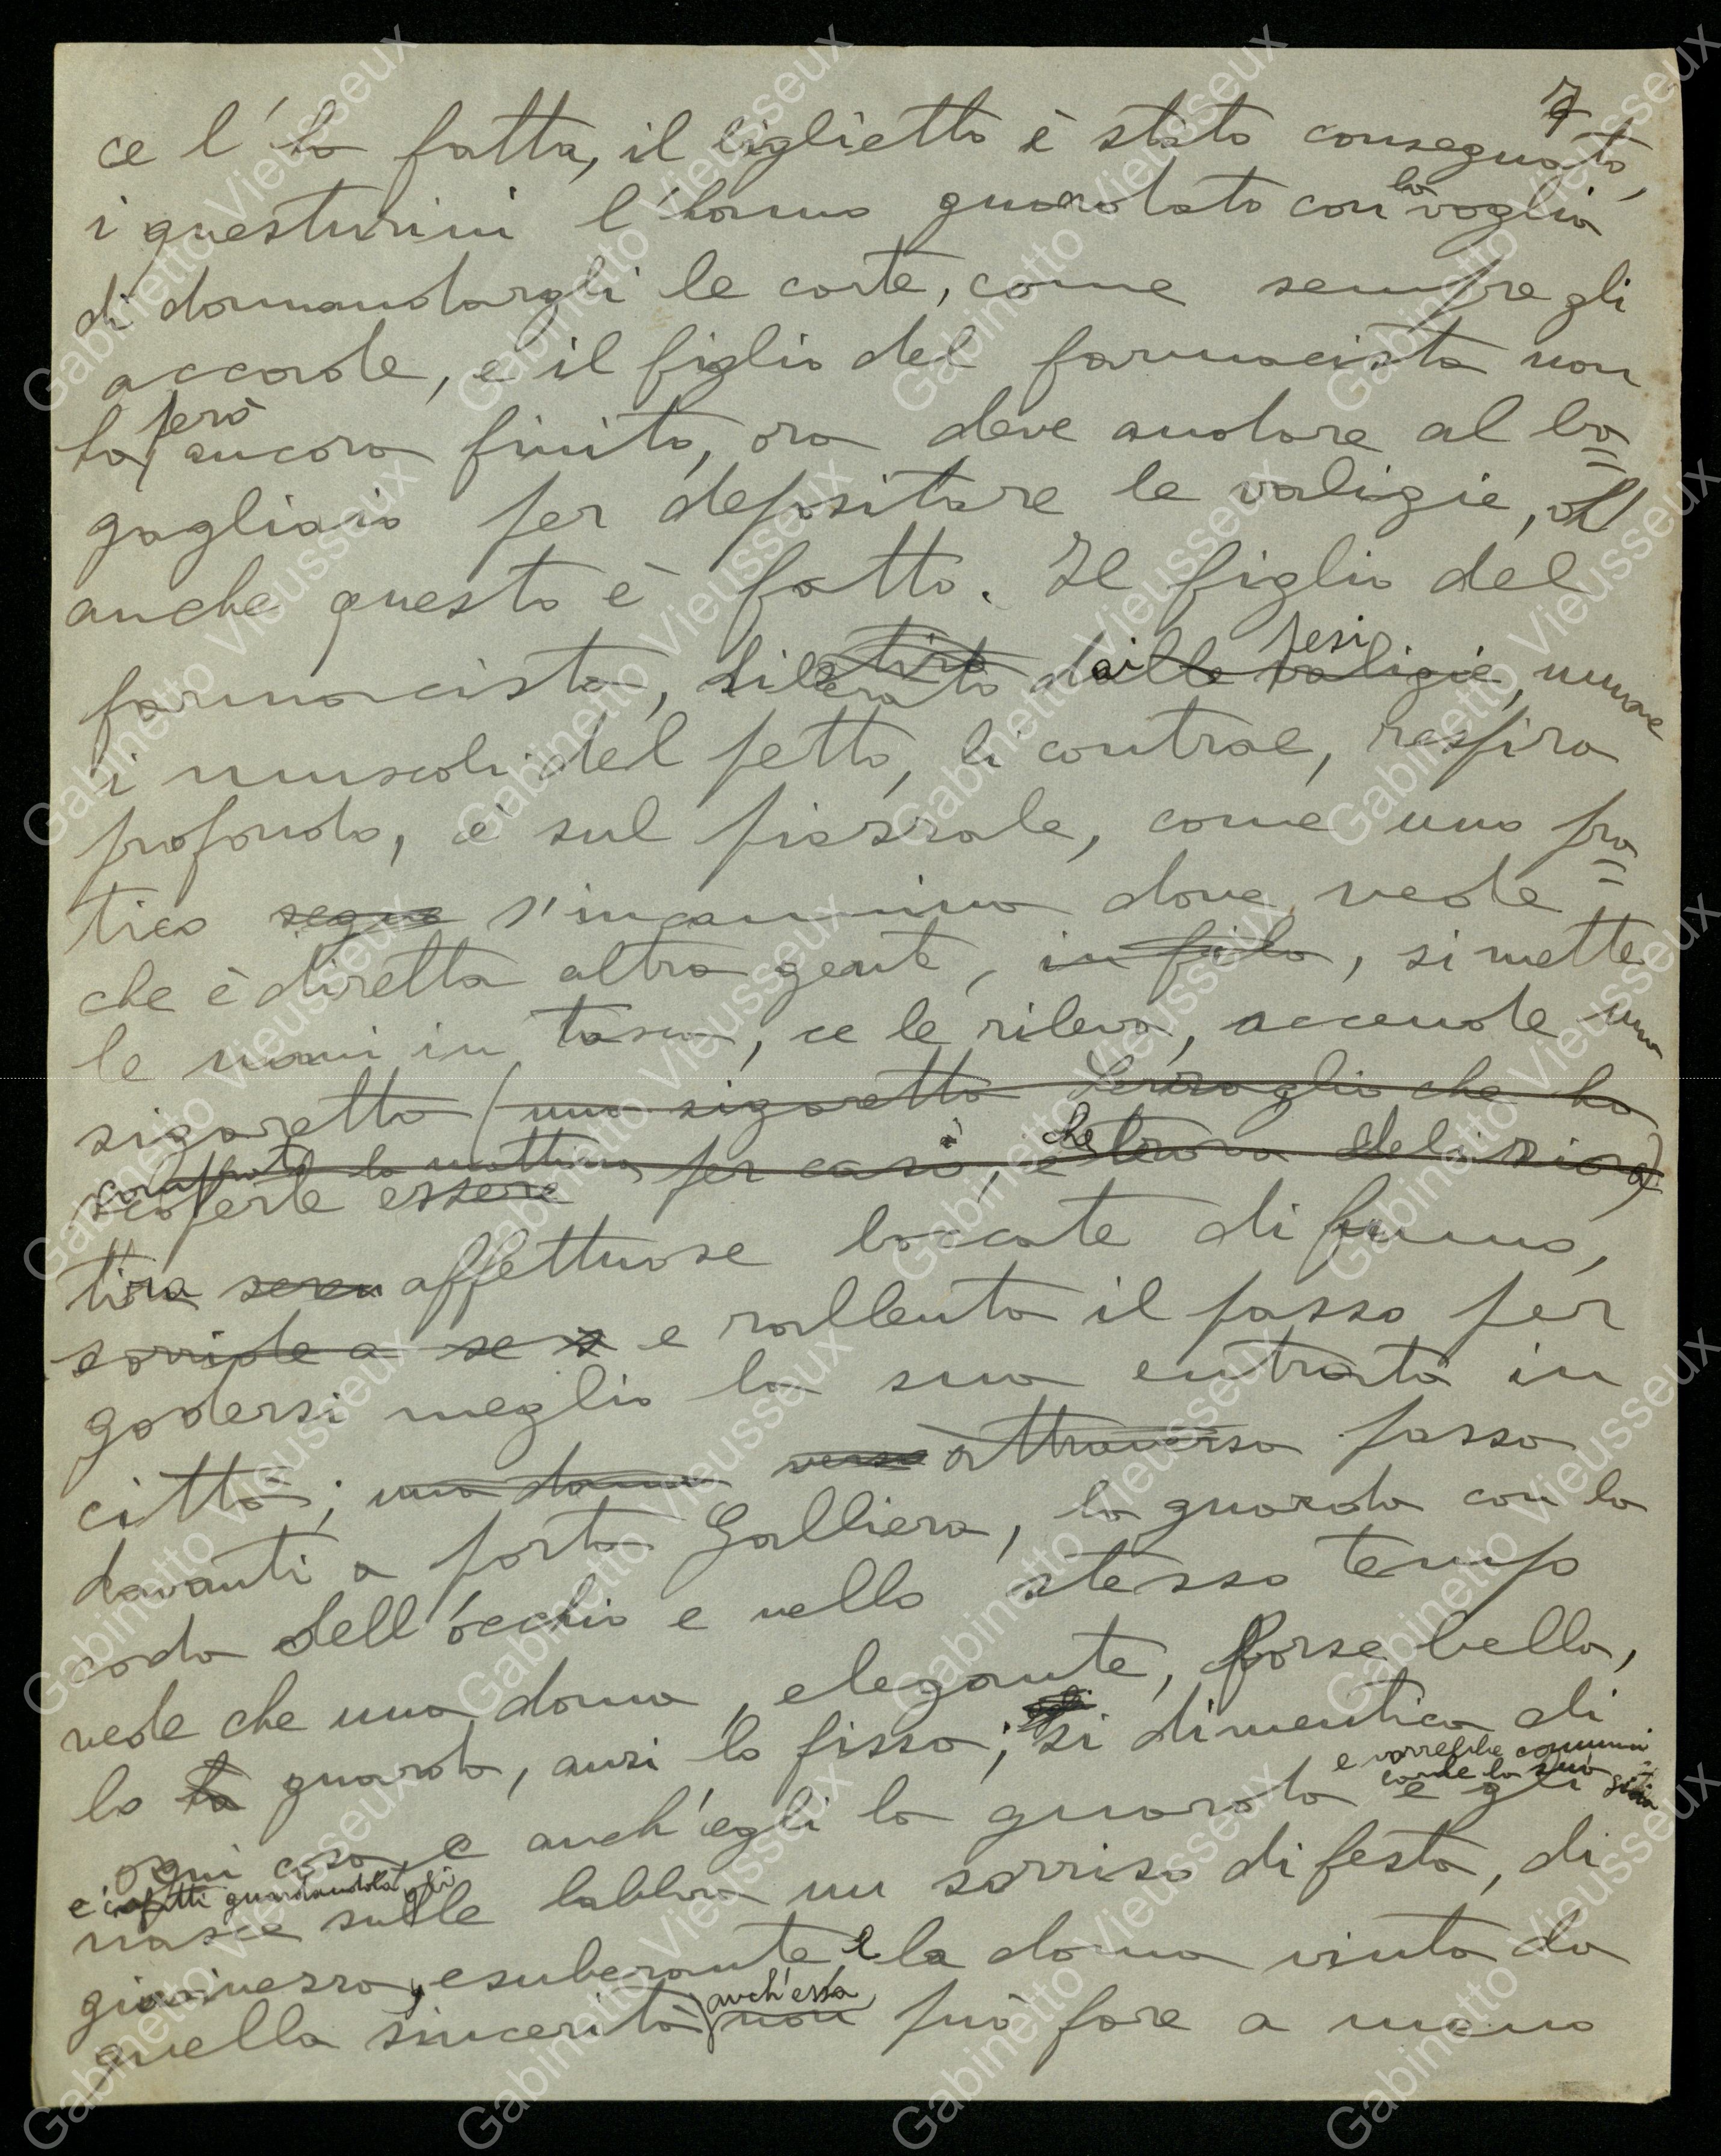 7
ce l'ha fatta, il biglietto è stato consegnato,
i questurini l'hanno guardato con la voglia
di domandargli le carte, come sempre gli
accade, e il figlio del farmacista non
ha però ancora finito, ora deve andare al ba=
gagliaio per depositare le valigie,
anche questo è fatto. Il figlio del
farmacista, liberato dai pesi, muove
i muscoli del petto, li contrae, respira
profondo, è sul piazzale, come uno pra=
tico segue s'incammina dove vede
che è diretta altra gente, in fila, si mette
le mani in tasca, ce le rileva, accende una
sigaretta (una sigaretta Serraglio che ha
comprato la mattina per caso, e che trova deliziosa)
scoperte essere
tira affettuose boccate di fumo,
sorride a se s e rallenta il passo per
godersi meglio la sua entrata in
città; una donna verso attraversa passa
davanti a porta Galliera, la guarda con la
coda dell'occhio e nello stesso tempo
vede che una donna, elegante, forse bella,
lo la guarda, anzi lo fissa; si dimentica di
e vorrebbe comuni
carle la sua gioia
ogni cosa, e anch'egli la guarda e gli
e infatti guardandola gli
nasce sulle labbra un sorriso di festa, di
giovinezza, esuberante e la donna vinta da
quella sincerità anch'essa non può fare a meno
Gabinetto Vieusseux